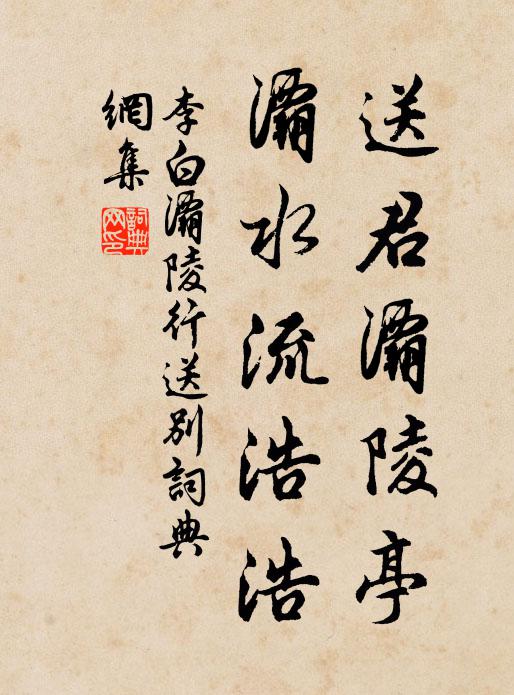 送君灞陵亭
灞水流浩浩
李白灞陵行送别詞典
網集
詞典
网印